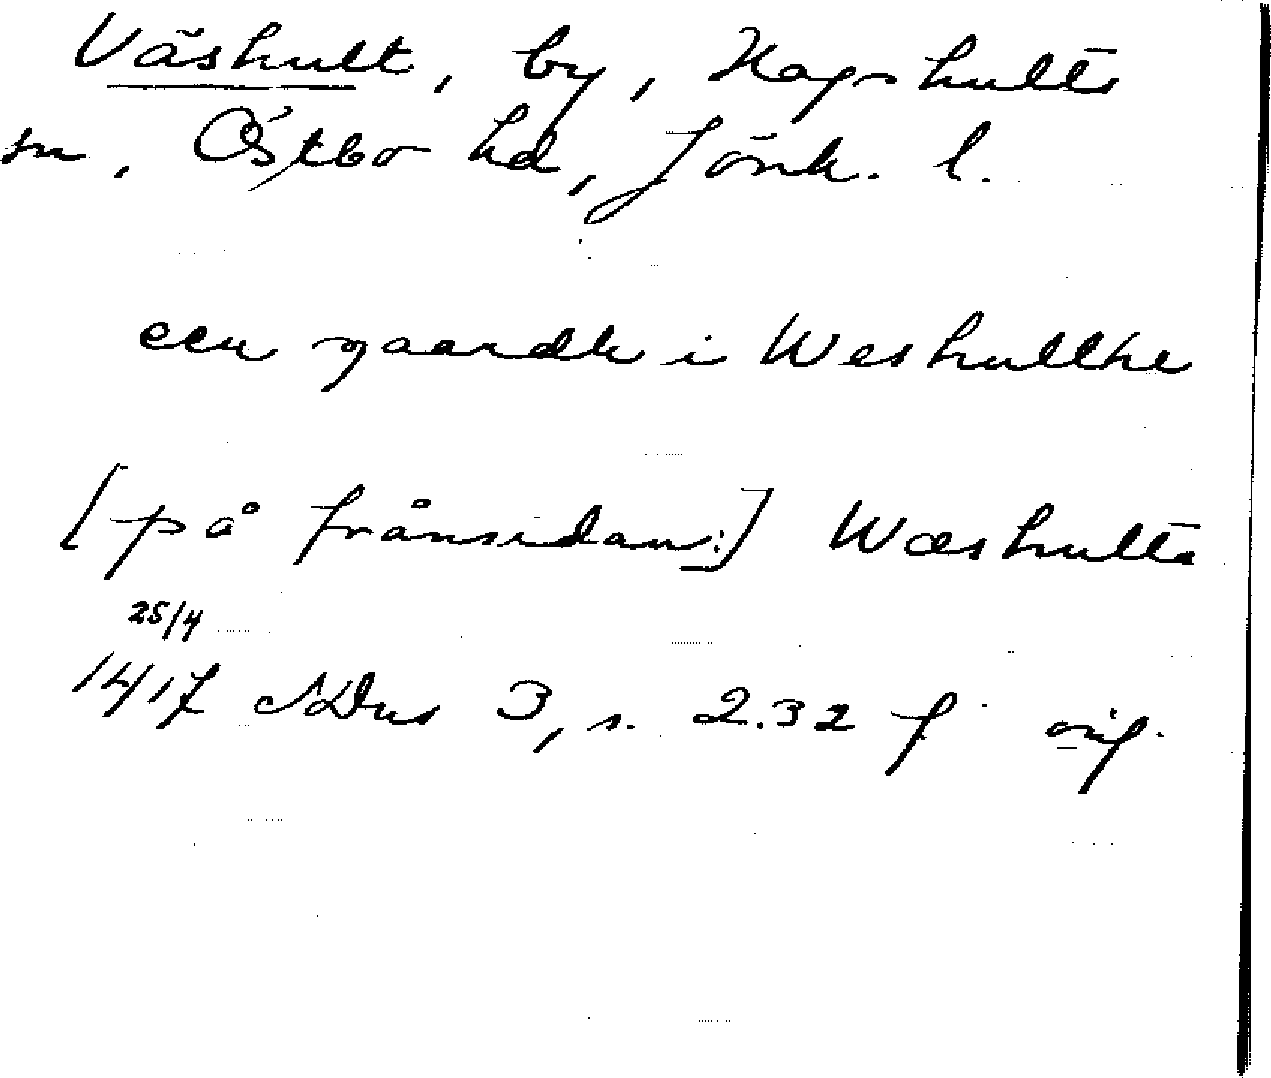 Väshult, by, Hagshults
sn, Östbo hd, Jönk. l.
een gaardh i Weshullthe
[på frånsidan:] Wæshulta
25/4
1417 SDns 3, s. 232 f orig.